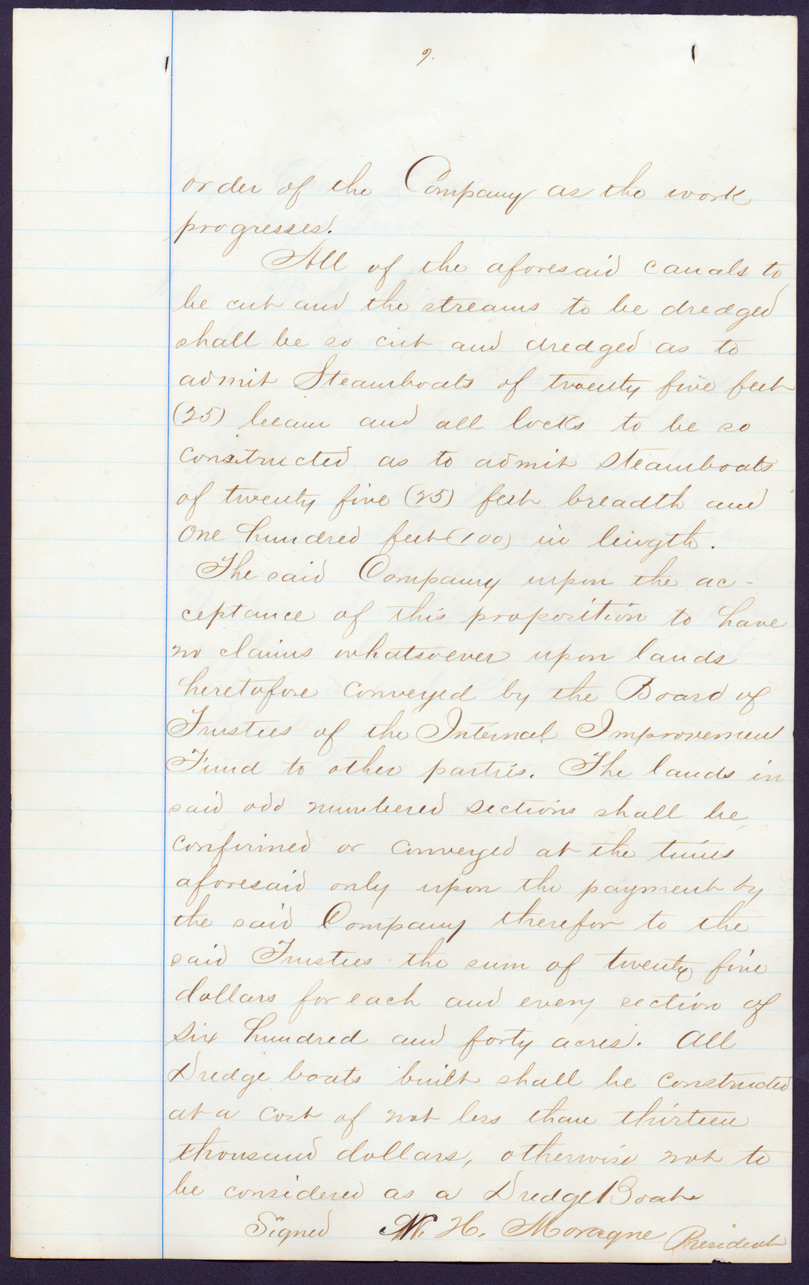 9.
order of the Company as the work
progresses.
All of the aforesaid canals to
be cut and the streams to be dredged
shall be so cut and dredged as to
admit Steamboats of twenty five feet
(25) beam and all locks to be so
constructed as to admit Steamboats
of twenty five (25) feet breadth and
One hundred feet (100) in length.
The said Company upon the ac-
ceptance of this proposition to have
no claims whatsoever upon lands
heretofore conveyed by the Board of
Trustees of the Internal Improvement
Fund to other parties. The lands in
said odd numbered sections shall be
confirmed or conveyed at the times
aforesaid only upon the payment by
the said Company therefor to the
said Trustees the sum of twenty five
dollars for each and every section of
six hundred and forty acres. All
Dredge boats built shall be constructed
at a cost of not less than thirteen
thousand dollars, otherwise not to
be considered as a Dredge Boat
Signed H. Moragne President